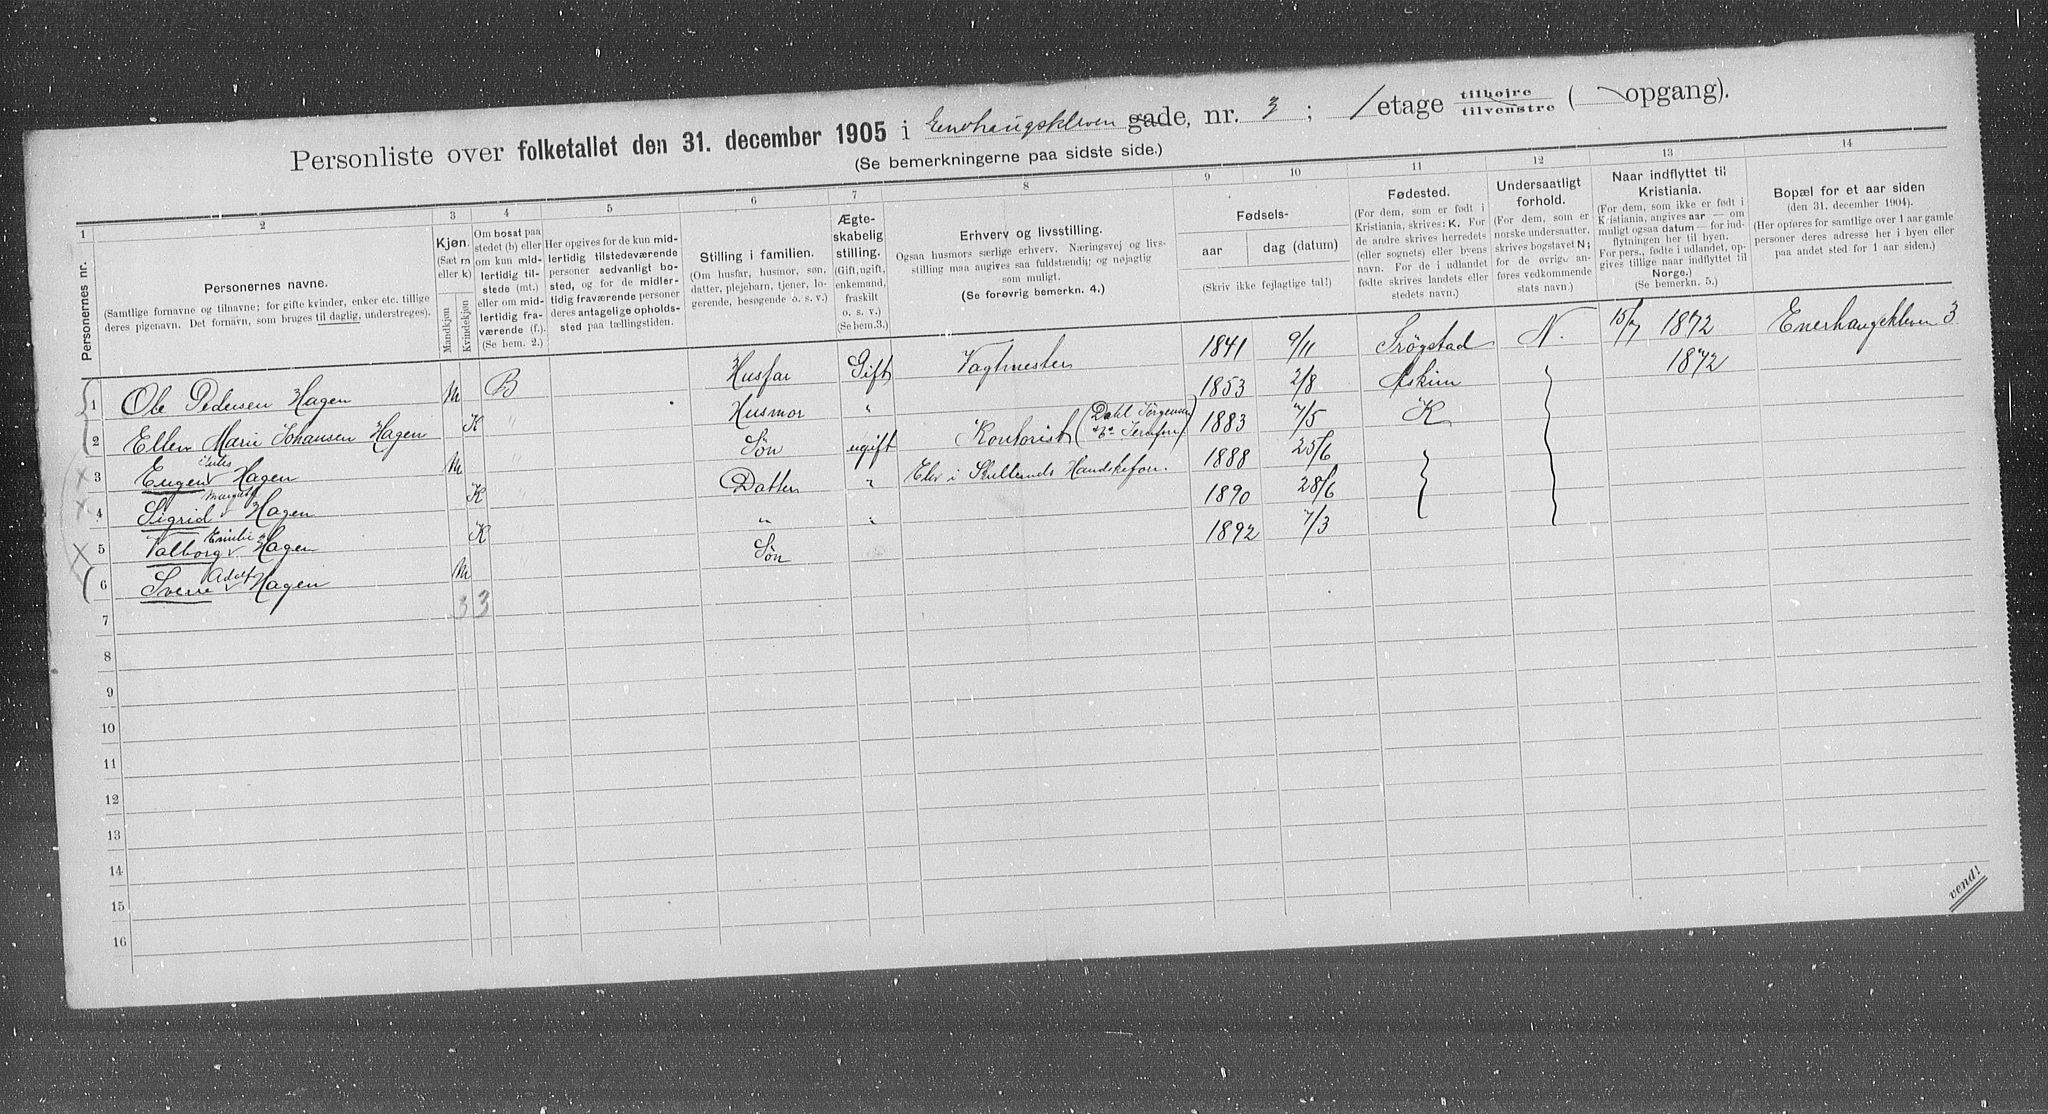 Personliste over folketallet den 31. december 1905 i Enerhaugskleven gade, nr. 3 ; 1 etage tilhøjre tilvenstre ( opgang).
(Se bemerkningerne paa sidste side.)
1 2 3 4 5 6 7 8 9 10 11 12 13 14
Personernes nr.
Personernes navne.
(Samtlige fornavne og tilnavne; for gifte kvinder, enker etc. tillige
deres pigenavn. Det fornavn, som bruges til daglig, understreges).
Kjøn.
(Sæt m
eller k)
Mandkjøn
Kvindekjøn
Om bosat paa
stedet (b) eller
om kun mid-
lertidig til-
stede (mt.)
eller om mid-
lertidig fra-
værende (f.)
(Se bem. 2.)
Her opgives for de kun mid-
lertidig tilstedeværende
personer sedvanligt bo-
sted, og for de midler-
tidig fraværende personer
deres antagelige opholds-
sted paa tællingstiden.
Stilling i familien.
(Om husfar, husmor, søn,
datter, plejebarn, tjener, lo-
gerende, besøgende o. s. v.)
Ægte-
skabelig
stilling.
(Gift, ugift,
enkemand,
fraskilt
o. s. v.)
(Se bem.3.)
Erhverv og livsstilling.
Ogsaa husmors særlige erhverv. Næringsvej og livs-
stilling maa angives saa fuldstændig og nøjagtig
som muligt.
(Se forøvrig bemerkn. 4.)
Fødsels-
aar
dag (datum)
(Skriv ikke fejlagtige tal!)
Fødested.
(For dem, som er født i
Kristiania, skrives: K. For
de andre skrives herredets
(eller sognets) eller byens
navn. For de i udlandet
fødte skrives landets eller
stedets navn.)
Undersaatligt
forhold.
(For dem, som er
norske undersaatter,
skrives bogstavet N;
for de øvrige an-
føres vedkommende
stats navn.)
Naar indflyttet til
Kristiania.
(For dem, som ikke er født i
Kristiania, angives aar — om
muligt ogsaa datum — for ind-
flytningen her til byen.
For pers., fødte i udlandet, op-
gives tillige naar indflyttet til
Norge.)
(Se bemerkn. 5.)
Bopæl for et aar siden
(den 31. december 1904).
(Her opføres for samtlige over 1 aar gamle
personer deres adresse her i byen eller
paa andet sted for 1 aar siden.)
1 Ole Pedersen Hagen m B Husfar Gift Vagtmester 1841 9/11 Trøgstad N. 15/7 1872 Enerhaugskleven 3
2 Ellen Marie Johansen Hagen K " Husmor " 1853 2/8 Askim 1872
3 Eugen Hagen m " Søn ugift Kontorist (Dahl Jørgensen 1883 7/5 K
4 Sigrid Margrete Hagen K " Datter " Elev i Handskeforr. 1888 25/6
5 Valborg Emilie Hagen K " " 1890 28/6
6 Sverre Adolf Hagen m Søn 1892 7/3
7 3 3
8
9
10
11
12
13
14
15
16
vend!